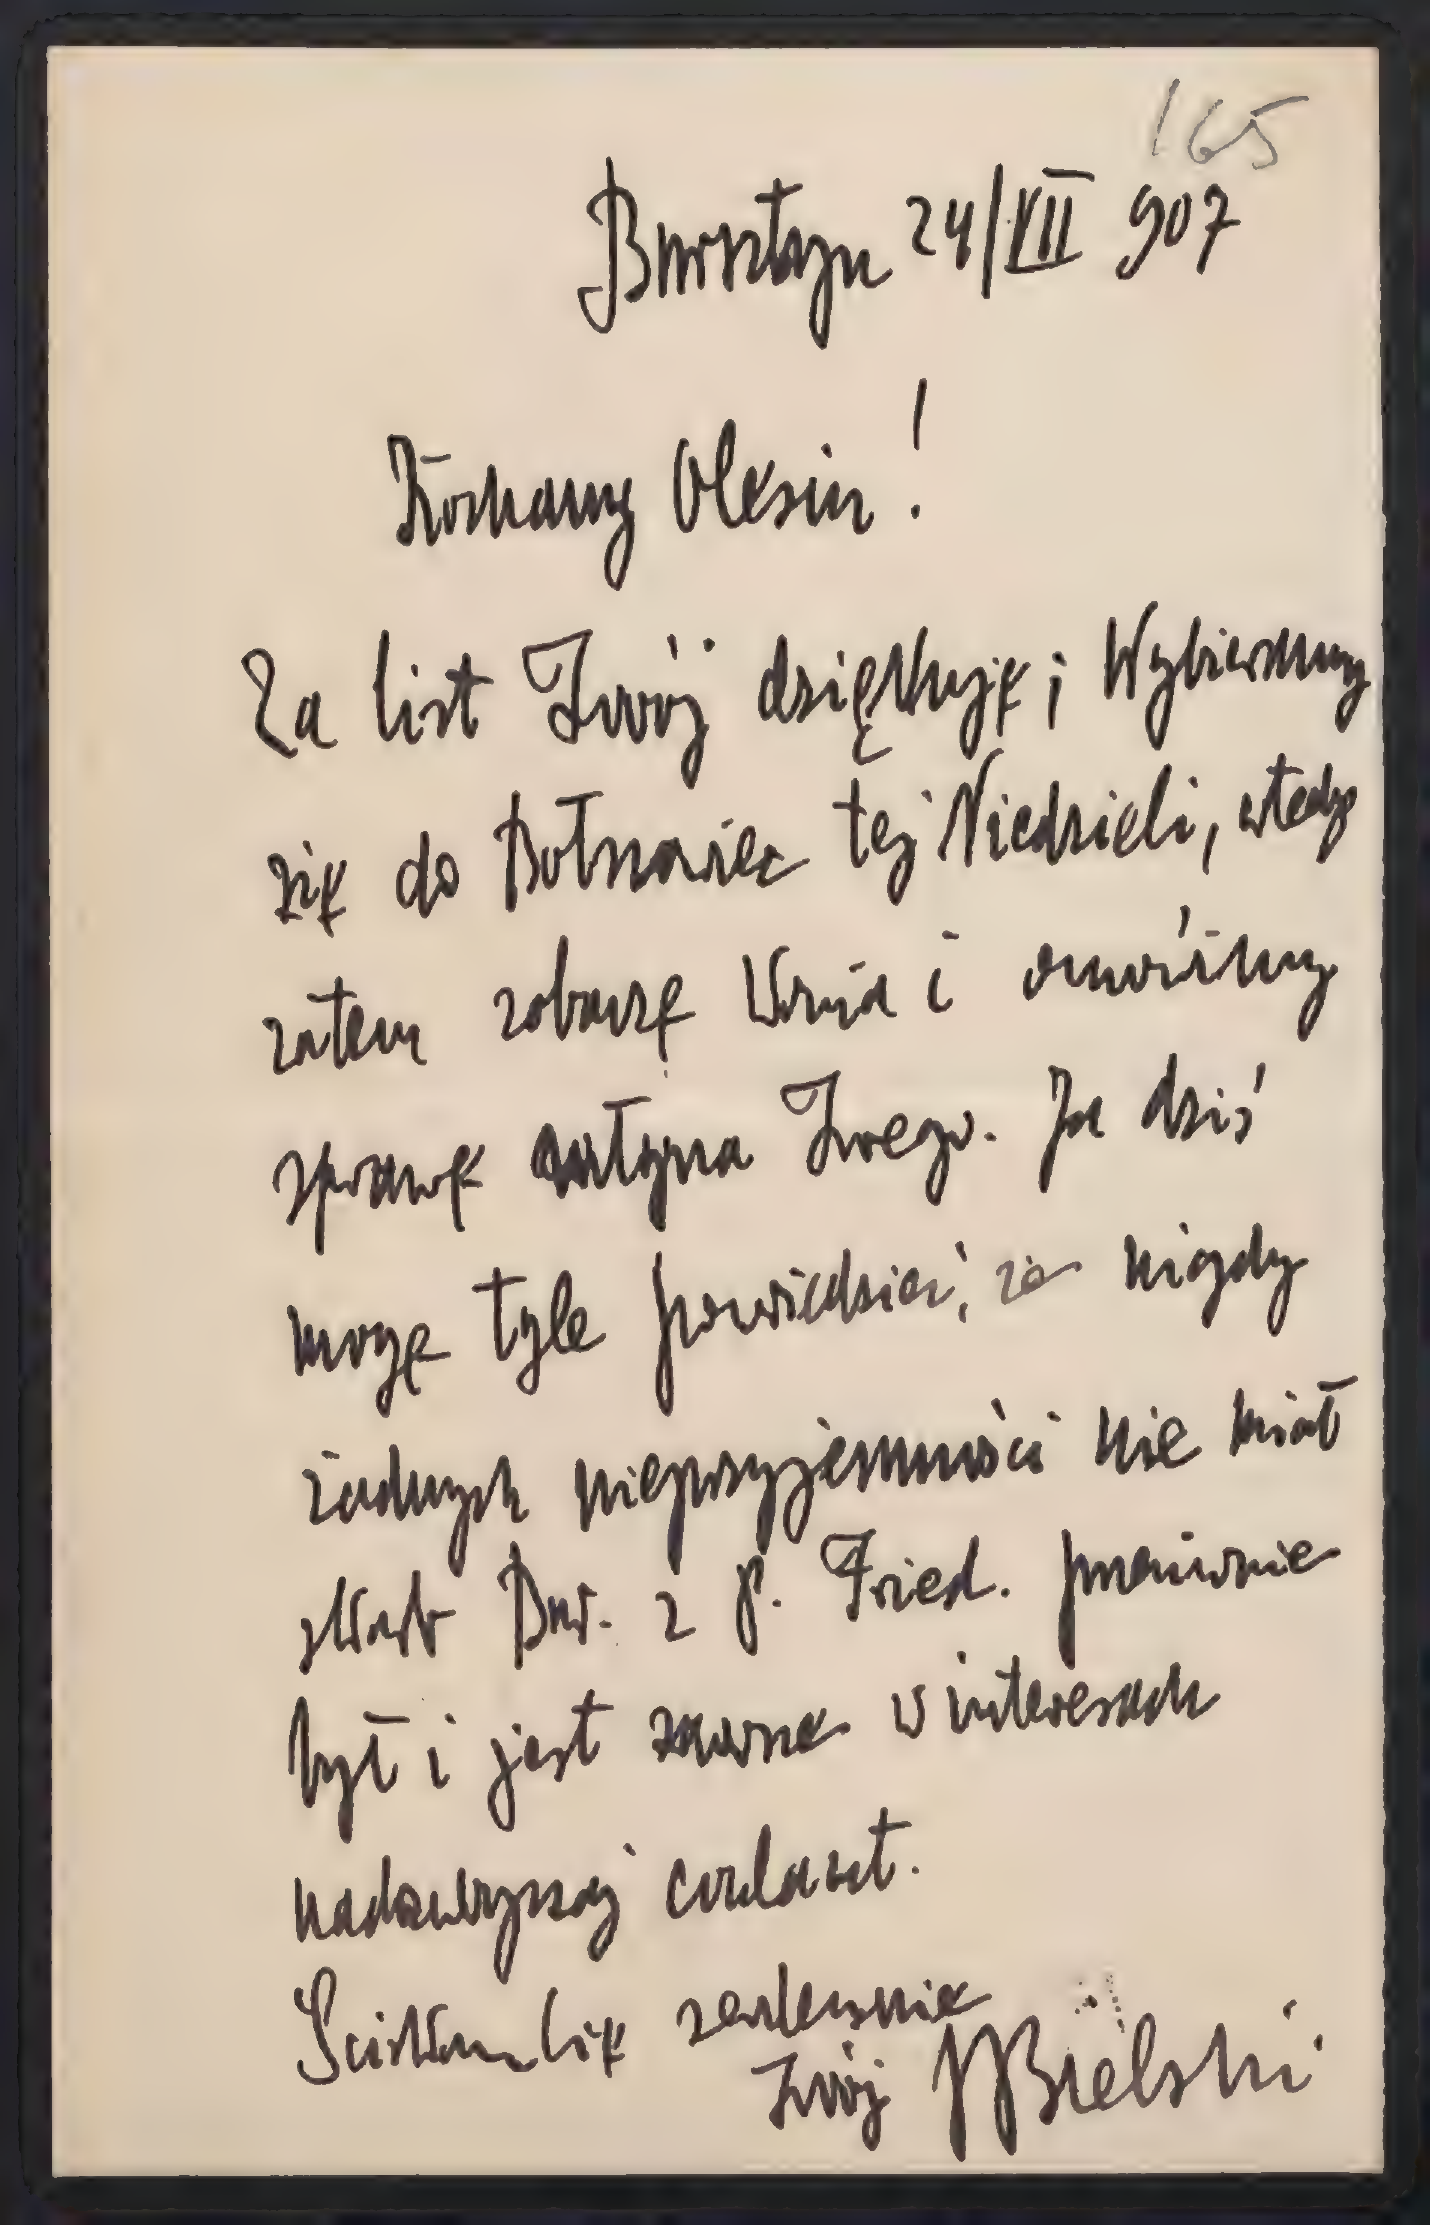 165
Bursztyn 24/VII 907
Kochany Olesiu!
Za list Twój dziękuję; Wybieramy
się do Bołszowiec tej Niedzieli, wtedy
zatem zobaczę Unia i omówimy
sprawę Twego. Ja dziś
mogę tyle powiedzieć, że nigdy
żadnych nieprzyjemności nie miał
skarb Bur. z p. Fried. przeciwnie
był i jest zawsze w interesach
nadzwyczaj coulant.
Ściskam Cię serdecznie
Twój Bielski